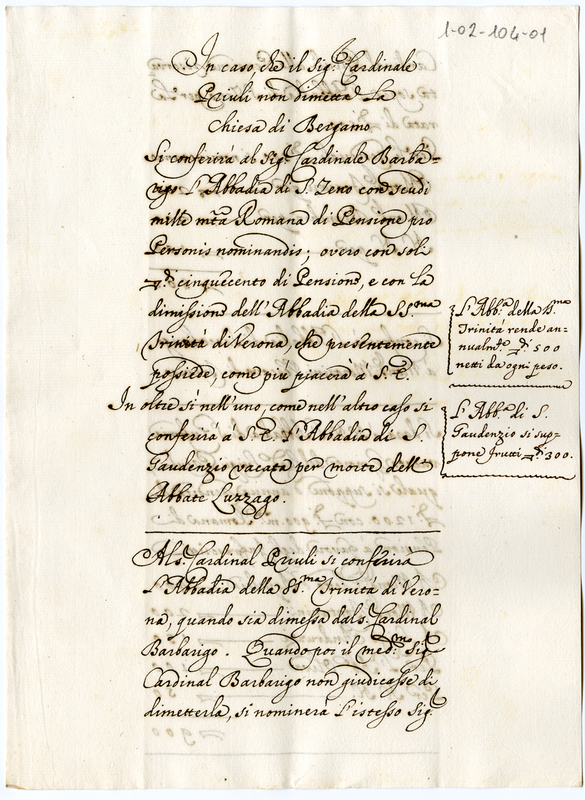 1-02-104-01
In caso, che il Sig.r Cardinale
Priuli non dimetta La
Chiesa di Bergamo
Si conferirà al Sig.r Cardinale Barba-
rigo L'Abbadia di S. Zeno con scudi
mille mta Romana di Pensione pro
Personis nominandis; overo con soli
cinquecento di Pensione, e con La
dimissione dell'Abbadia della SS.ma
Trinità di Verona, che presentemente
possiede, come più piacerà á S. E.
In oltre sì nell'uno, come nell'altro caso si
conferirà á S. E. L'Abbadia di S.
Gaudenzio vacata per morte dell'
Abbate Luzzago.
Al S. Cardinal Priuli si conferirà
L'Abbadia della SS.ma Trinità di Vero-
na, quando sia dimessa dal S. Cardinal
Barbarigo. Quando poi il med.mo Sig.r
Cardinal Barbarigo non giudicasse di
dimetterla, si nominerà L'istesso Sig.r
L'Abb.a della S.ma
Trinità rende an-
nualm.te 500
netti da ogni peso.
L'Abb.a di S.
Gaudenzio si sup-
pone frutti 300.